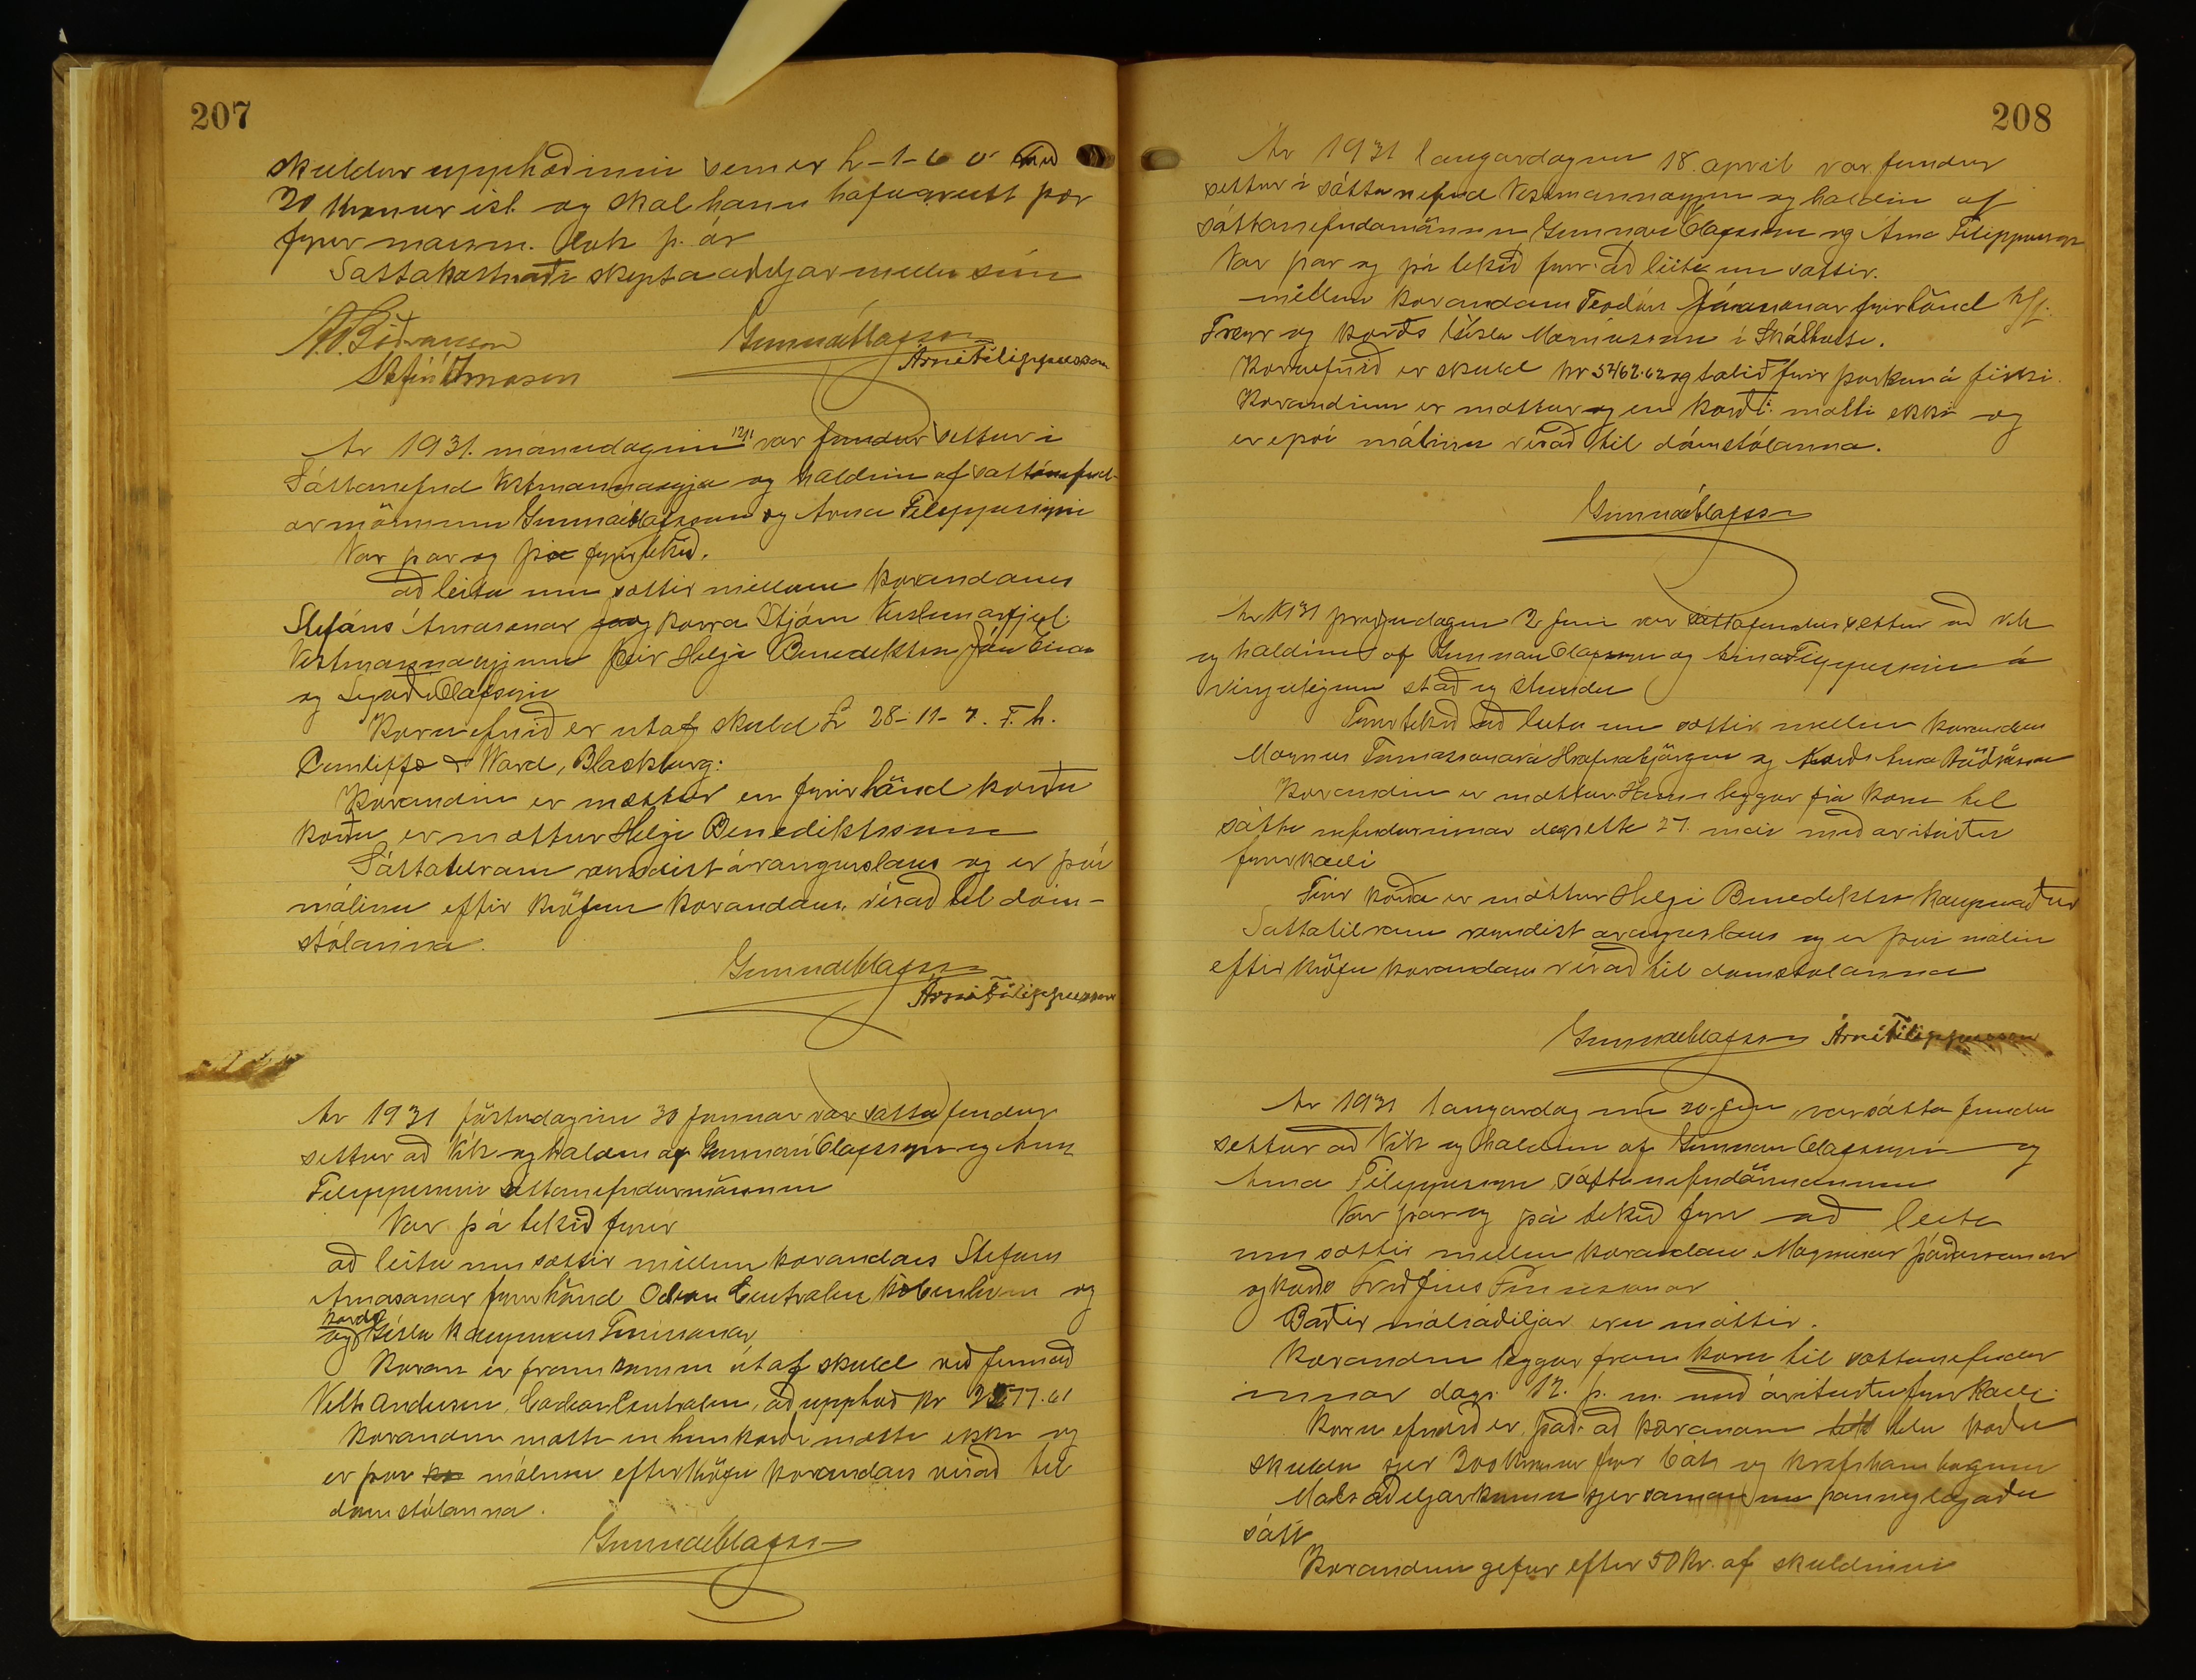 207
skuldar upphæðinni sem er £-1-6 0 með
30 krónur ísl. og skal hann hafa greitt þær
fyrir marsm. lok þ. ár
Sáttakostnaði skipta aðiljar milli sín
Á. Böðvarsson Gunnar Ólafsson
Stefán Árnason Árni Filippusson
Ár 1931. mánudaginn 12/1 var fundur settur í
Sáttanefnd Vestmannaeyja og haldinn af sáttanefnd-
armönnum Gunnari Ólafssyni og Árna Filippussyni
Var þar og þá fyrirtekið.
að leita um sættir millum kærandans
Stefáns Árnasonar og kærða Stjórn
Vestmannaeyjum þeir Helgi Benediktsson Jón
og Ólafssyni
Kæruefnið er útaf skuld £ 28-11-7. F. h.
Cunliffe & Ward, Blackburg:
Kærandin er mættur en fyrir hönd kærðu
kærðu er mættur Helgi Benediktsson
Sáttatilraun reyndist árangurslaus og er því
málinu eftir kröfum kærandans vísað til dóm-
stólanna.
Gunnar Ólafsson
Árni Filippusson
Ár 1931 föstudaginn 30 Januar var sáttafundur
settur að Vík og haldinn af Gunnari Ólafssyni og Árna
Filippussyni sáttanefndarmönnum
Var þá tekið fyrir
að leita um sættir millum kærandans Stefáns
Árnasonar fyrir hönd Centralen og
kærðs
og Gísla kaupmans Finnssonar
Kæran er fram komin út af skuld við firmað
Andersen, Centralen, að upphæð kr 3577.61
Kærandinn mætti en hinn kærði mætti ekki og
er því málinu eftir kröfu kærandans vísað til
dómstólanna.
Gunnar Ólafsson
208
Ár 1931 laugardaginn 18. apríl var fundur
settur í sáttanefnd Vestmannaeyja og haldin af
sáttanefndamönnum Gunnari Ólafssyni og Árna Filippussyni
Var þar og þá tekið fyrir að leita um sættir.
millum kærandans Teodórs Jónassonar fyrir hönd h/f.
Freyr og kærðs Gísla Magnússonar í Skálholti.
Kæruefnið er skuld kr 5462.62 og talið fyrir þurkun á fiski.
Kærandinn er mættur og en kærði mætti ekki og
er því málinu vísað til dómstólanna.
Gunnar Ólafsson
Ár 1931 þriðjudaginn 2 Juni var sáttafundur settur að Vík
og haldinn af Gunnari Ólafssyni og Árna Filippussyni á
venjulegum stað og stundu
Fyrirtekið að leita um sættir millum kærandans
Magnús Tómassonar á Hrafnabjörgum og kærðs Árna Böðvarssonar
Kærandinn er mættur Hann leggur frá kæru til
sáttanefndarinnar dagsetta 27. maí með árituðu
fyrirkalli
Fyrir kærða er mættur Helgi Benediktss kaupmaður
Sáttatilraun reyndist árangurslaus og er því málinu
eftir kröfu kærandans vísað til dómstólanna
Gunnar Ólafsson Árni Filippusson
Ár 1931 laugardaginn 20. Juni var sáttafundur
settur að Vík og haldinn af Gunnari Ólafssyni og
Árna Filippussyni sáttanefndarmönnum
Var þar og þá tekið fyrir að leita
um sættir millum kærandans Magnúsar Þórðarsonar
og kærðs Friðfinns Finnssonar
Báðir málsaðiljar eru mættir.
Kærandinn leggur fram kæru til sáttanefndar
innar dags. 12. þ. m. með árituðu fyrirkalli.
Kæruefnið er það að kærandinn telur kærða
skulda sjer 300 krónur fyrir bát og krefst hann
Málsaðiljar komu sjer saman um þannig lagaða
sátt
Kærandinn gefur eftir 50 kr. af skuldinni